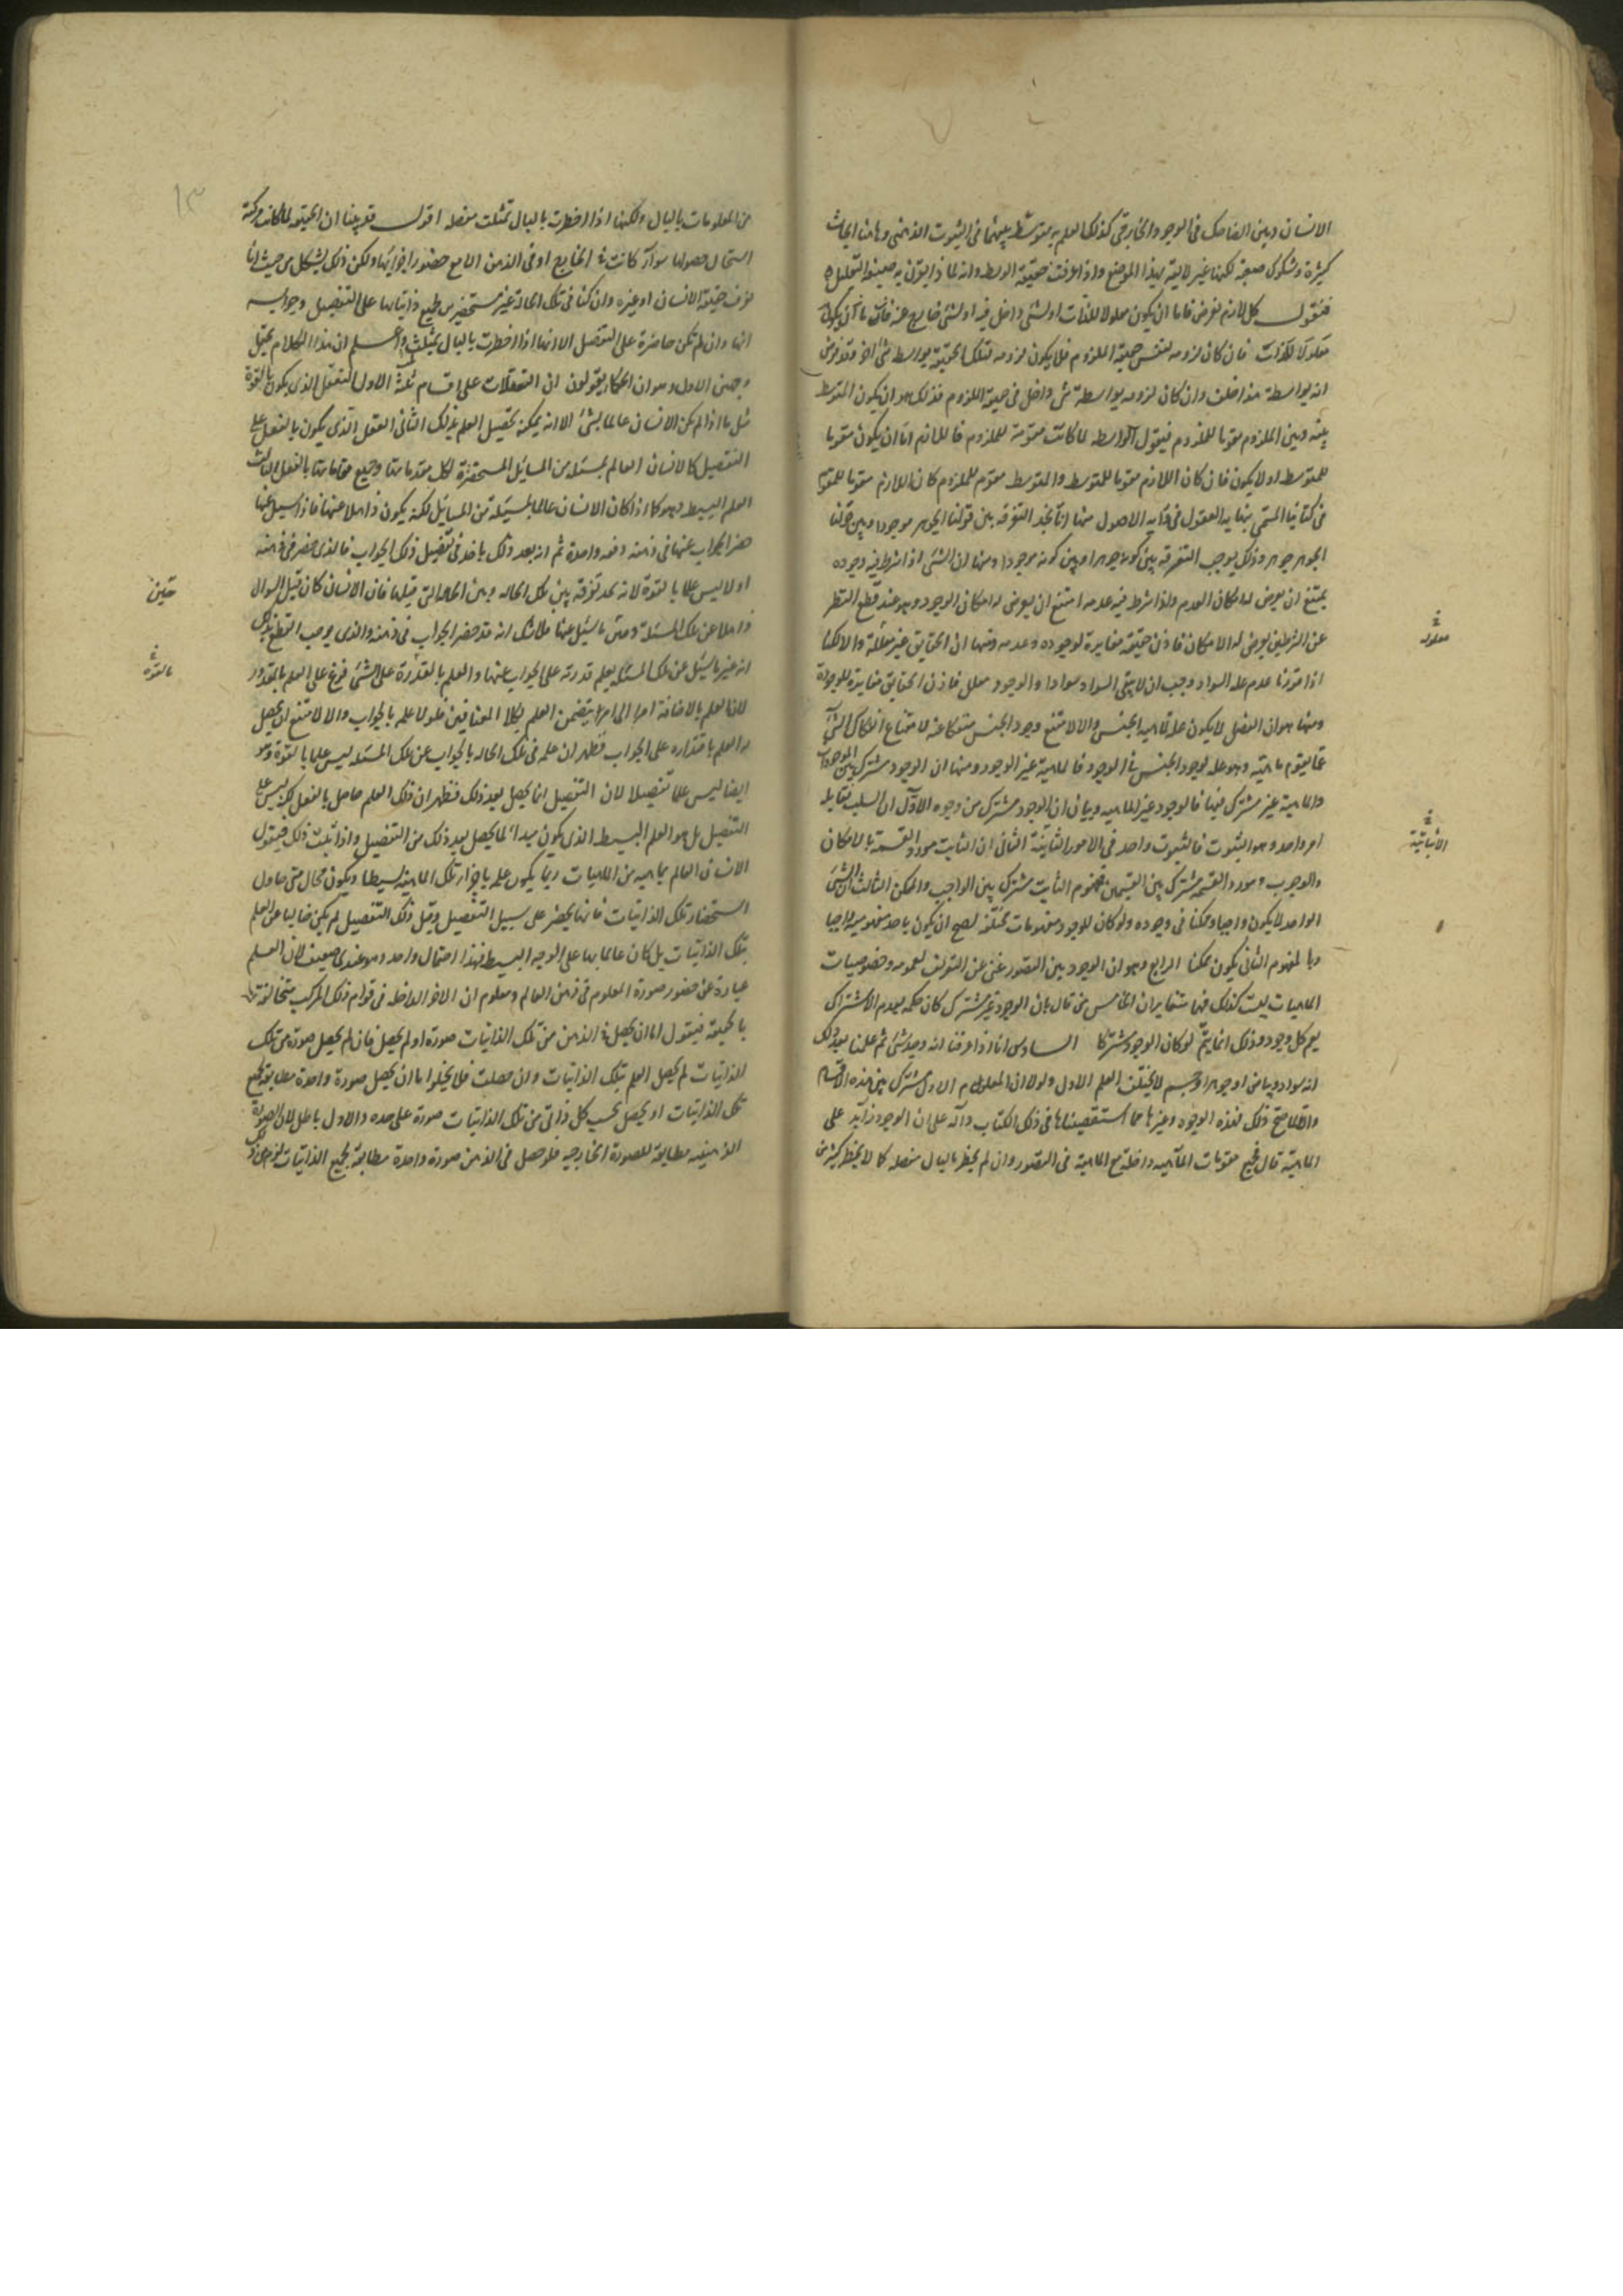 الانسان وبين الضاحك فى الوجود الخارجى كذلك العلم به متوسط بينهما فى الثبوت الذهنى وهاهنا ابحاث
كثيرة وشكوك صعبة لكنها غير لايقة بهذا الموضع واذا عرفت حقيقة الوسط وانه لماذا يقرن به صيغة التعليل
فنقول كل لازم يفرض فاما ان يكون معلولا للذات او لشئ داخل فيه او لشئ خارج عنه فان
معلولا للذات فان كان لزومه لنفس حقيقة الملزوم فلا يكون لزومه لتلك الحقيقة بواسطة شئ اخر وقد فرض
انه بواسطة هذا خلف وان كان لزومه بواسطة شئ داخل فى حقيقة الملزوم فذلك هو ان يكون المتوسط
بينه وبين الملزوم مقوما للملزوم فيقول الواسطة لما كانت مقومة للملزوم فاللازم اما ان يكون مقوما
للمتوسط او لا يكون فان كان اللازم مقوما للمتوسط والمتوسط مقوم للملزوم كان اللازم مقوما للمقوم
فى كتابنا المسمى بنهاية العقول فى دراية الاصول منها انا نجد التفرقة بين قولنا الجوهر موجود وبين قولنا
الجوهر جوهر وذلك يوجب التفرقة بين كونه جوهرا وبين كونه موجودا ومنها ان الشئ اذا شرط فيه وجوده
يمتنع ان يعرض له امكان العدم واذا شرط فيه عدمه امتنع ان يعرض له امكان الوجود وهو عند قطع النظر
عن الشرطين يعرض له الامكان فاذن حقيقة مغايرة لوجوده وعدمه ومنها ان الحقايق غير معللة والا لكنا
اذا قدرنا عدم علة السواد وجب ان لا يبقى السواد سوادا والوجود معلل فاذن الحقايق مغايرة للوجود
ومنها هو ان الفصل لا يكون علة لماهية الجنس والا لامتنع وجود الجنس منفكا عنه لامتناع انفكاك الشئ
عما يقوم ماهيته وهو علة لوجود الجنس فالوجود فالماهية غير الوجود ومنها ان الوجود مشترك بين الموجودات
والماهية غير مشتركة فيها فالوجود غير الماهية وبيان ان الوجود مشترك من وجوه الاول ان السلب يقابله
امر واحد وهو الثبوت فالثبوت واحد فى الامور الثابتة الثانى ان الثابت مورد القسمة بالامكان
والوجوب ومورد القسمة مشترك بين القسمين فمفهوم الثابت مشترك بين الواجب والممكن الثالث ان الشئ
الواحد لا يكون واجبا وممكنا فى وجوده ولو كان للوجود مفهومات مختلفة لصح ان يكون باحد مفهوميه واجبا
وبالمفهوم الثانى يكون ممكنا الرابع وهو ان الوجود بين التصور غنى عن التعريف لعمومه وخصوصيات
الماهيات ليست كذلك فهما متغايران الخامس من قال بان الوجود غير مشترك كان حكمه بعدم الاشتراك
يعم كل وجود وذلك انما يتم لو كان الوجود مشتركا السادس انا اذا عرفنا انه وجد شئ ثم علمنا بعد ذلك
انه سواد وبياض او جوهر او جسم لا يختلف العلم الاول ولولا ان المعلوم الاول مشترك بين هذه الاقسام
والا لما صح ذلك فهذه الوجوه وغيرها مما استقصيناها فى ذلك الكتاب دالة على ان الوجود زايد على
الماهية قال جميع مقومات الماهية داخلة مع الماهية فى التصور وان لم يخطر بالبال مفصلة كما لا يخطر كثير من
معلوله
الثابتة
١٣
من المعلومات بالبال ولكنها اذا اخطرت بالبال تمثلت مفصلة اقول قد بينا ان الحقيقة لما كانت مركبة
استحال حصولها سواء كانت فى الخارج او فى الذهن الا مع حضور اجزائها ولكن ذلك يشكل من حيث انا
نعرف حقيقة الانسان او غيره وان كنا فى تلك الحالة غير مستحضرين لجميع ذاتياتها على التفصيل وجوابه
انها وان لم تكن حاضرة على التفصيل الا انها اذا اخطرت بالبال تمثلت واعلم ان هذا الكلام يحتمل
وجهين الاول وهو ان الحكما يقولون ان التعقلات على اقسام ثلثة الاول التعقل الذى يكون بالقوة
مثل ما اذا لم يكن الانسان عالما بشئ الا انه يمكنه تحصيل العلم بذلك الثانى العقل الذى يكون بالفعل على
التفصيل كالانسان العالم بمسئلة من المسايل المستحضرة لكل مقدماتها وجميع مقاماتها بالفعل الثالث
العلم البسيط وهو كما اذا كان الانسان عالما بمسئلة من المسايل لكنه يكون ذاهلا عنها فاذا سيل عنها
حضر الجواب عنها فى ذهنه دفعة واحدة ثم انه بعد ذلك ياخذ فى تفصيل ذلك الجواب فالذى حضر فى ذهنه
اولا ليس علما بالقوة لانه يجد تفرقة بين تلك الحالة وبين الحالة التى قبلها فان الانسان كان قبل السوال
ذاهلا عن تلك المسئلة ومتى ما سيل عنها فلا شك انه قد حضر الجواب فى ذهنه والذى يوجب القطع بذلك
انه عند ما سيل عن تلك المسئلة يعلم قدرته على الجواب عنها والعلم بالقدرة على الشئ فرع على العلم بالمقدور
لان العلم باضافة امر الى امر يتضمن العلم بكلا المضافين فلولا علمه بالجواب والا لامتنع ان يحصل
له العلم باقتداره على الجواب فظهر ان علمه فى تلك الحالة بالجواب عن تلك المسئلة ليس علما بالقوة وهو
ايضا ليس علما تفصيلا لان التفصيل انما يحصل بعد ذلك فظهر ان ذلك العلم حاصل بالفعل لكن ليس على
التفصيل بل هو العلم البسيط الذى يكون مبدا لما يحصل بعد ذلك من التفصيل واذا ثبت ذلك فيقول
الانسان العالم بماهية من الماهيات ربما يكون علمه باجزاء تلك الماهية بسيطا ويكون بحال متى حاول
استحضار تلك الذاتيات فانها يحضر على سبيل التفصيل وقبل ذلك التفصيل لم يكن خاليا عن العلم
بتلك الذاتيات بل كان عالما بها على الوجه البسيط فهذا احتمال واحد وهو عندى ضعيف لان العلم
عبارة عن حضور صورة المعلوم فى ذهن العالم ومعلوم ان الاجزا الداخلة فى قوام ذلك المركب متخالفة
بالحقيقة فيقول اما ان يحصل فى الذهن من تلك الذاتيات صورة او لم يحصل فان لم يحصل صورة من تلك
الذاتيات لم يحصل العلم بتلك الذاتيات وان حصلت فلا يخلوا ما ان يحصل صورة واحدة مطابقة لجميع
تلك الذاتيات او يحصل بحسب كل ذاتى من تلك الذاتيات صورة على حدة والاول باطل لان الصورة
الذهنية مطابقة للصورة الخارجية فلو حصل فى الذهن صورة واحدة مطابقة لجميع الذاتيات
حين
بالقوة